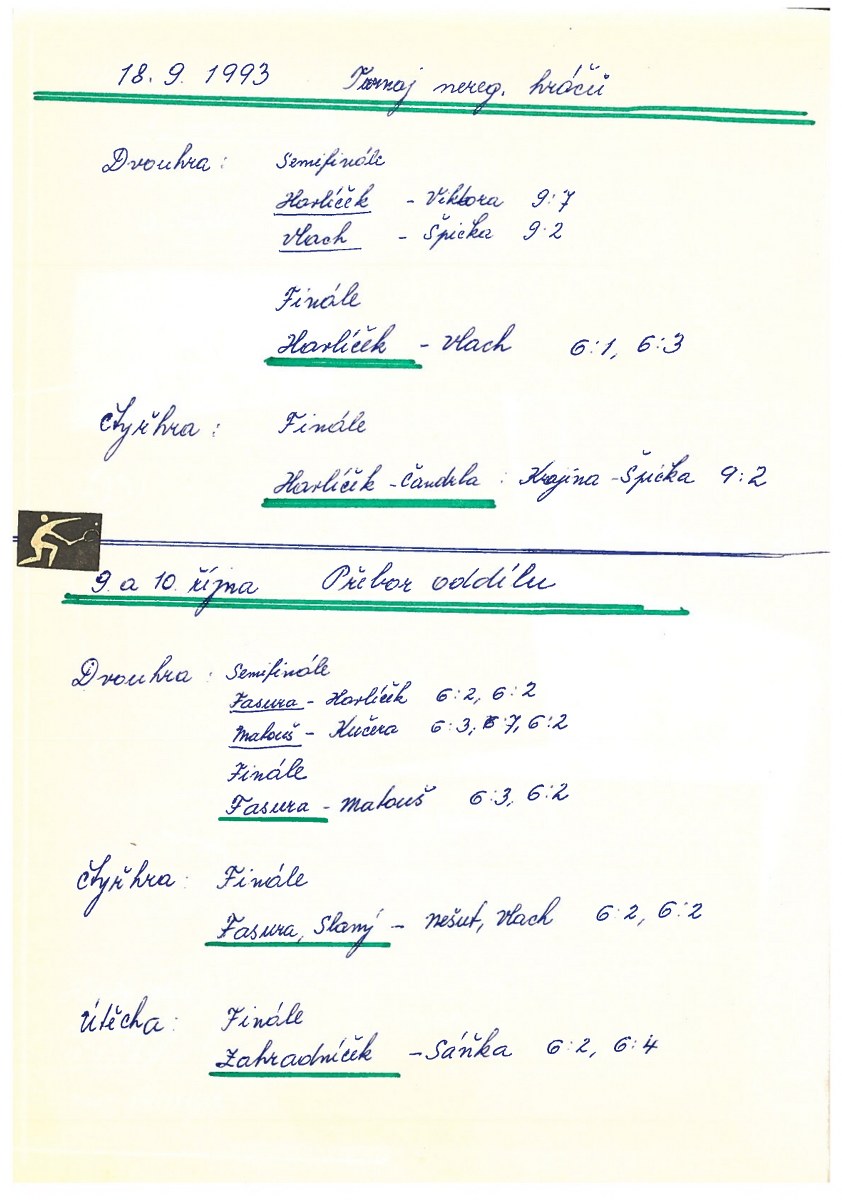 18. 9. 1993 Turnaj nereg. hráčů
Dvouhra : Semifinále
Havlíček - Viktora 9:7
Vlach - Špička 9:2
Finále
Havlíček - Vlach 6:1, 6:3
Čtyřhra : Finále
Havlíček - Čandrla : Krajina - Špička 9:2
9. a 10. října Přebor oddílu
Dvouhra : Semifinále
Fasura - Havlíček 6:2, 6:2
Matouš - Kučera 6:3, 5:7, 6:2
Finále
Fasura - Matouš 6:3, 6:2
Čtyřhra : Finále
Fasura, Slaný - Nešut, Vlach 6:2, 6:2
Útěcha : Finále
Zahradníček - Sáňka 6:2, 6:4